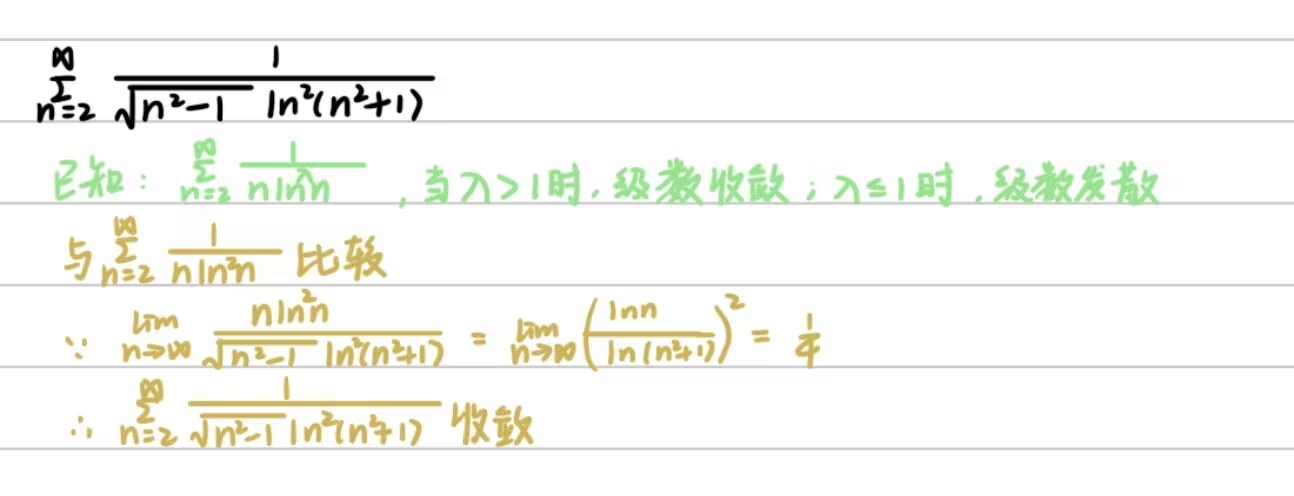 $\sum_{n=2}^{\infty} \frac{1}{\sqrt{n^2-1}\ \ln^2(n^2+1)}$
已知：$\sum_{n=2}^{\infty} \frac{1}{n\ln^{\lambda} n}$，当λ>1时，级数收敛；λ≤1时，级数发散
与$\sum_{n=2}^{\infty} \frac{1}{n\ln^2 n}$比较
∵ $\lim_{n\to\infty} \frac{n\ln^2 n}{\sqrt{n^2-1}\ \ln^2(n^2+1)} = \lim_{n\to\infty} \left(\frac{\ln n}{\ln(n^2+1)}\right)^2 = \frac{1}{4}$
∴ $\sum_{n=2}^{\infty} \frac{1}{\sqrt{n^2-1}\ \ln^2(n^2+1)}$ 收敛